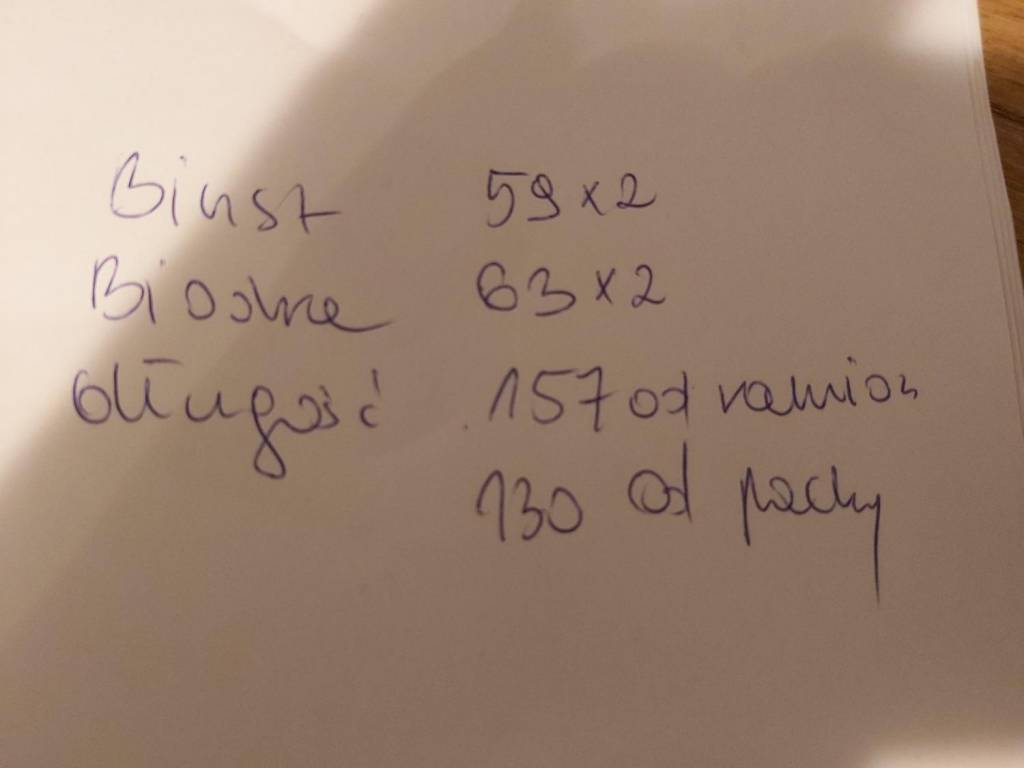 Biust 59 x 2
Biodra 63 x 2
długość 157 od ramion
130 od pachy